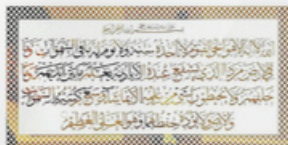 بسم الله الرحمن الرحيم
الله لا إله إلا هو الحي القيوم لا تأخذه سنة ولا نوم له ما في السموات وما
في الأرض من ذا الذي يشفع عنده إلا بإذنه يعلم ما بين أيديهم وما
خلفهم ولا يحيطون بشيء من علمه إلا بما شاء وسع كرسيه السموات
والأرض ولا يؤده حفظهما وهو العلي العظيم